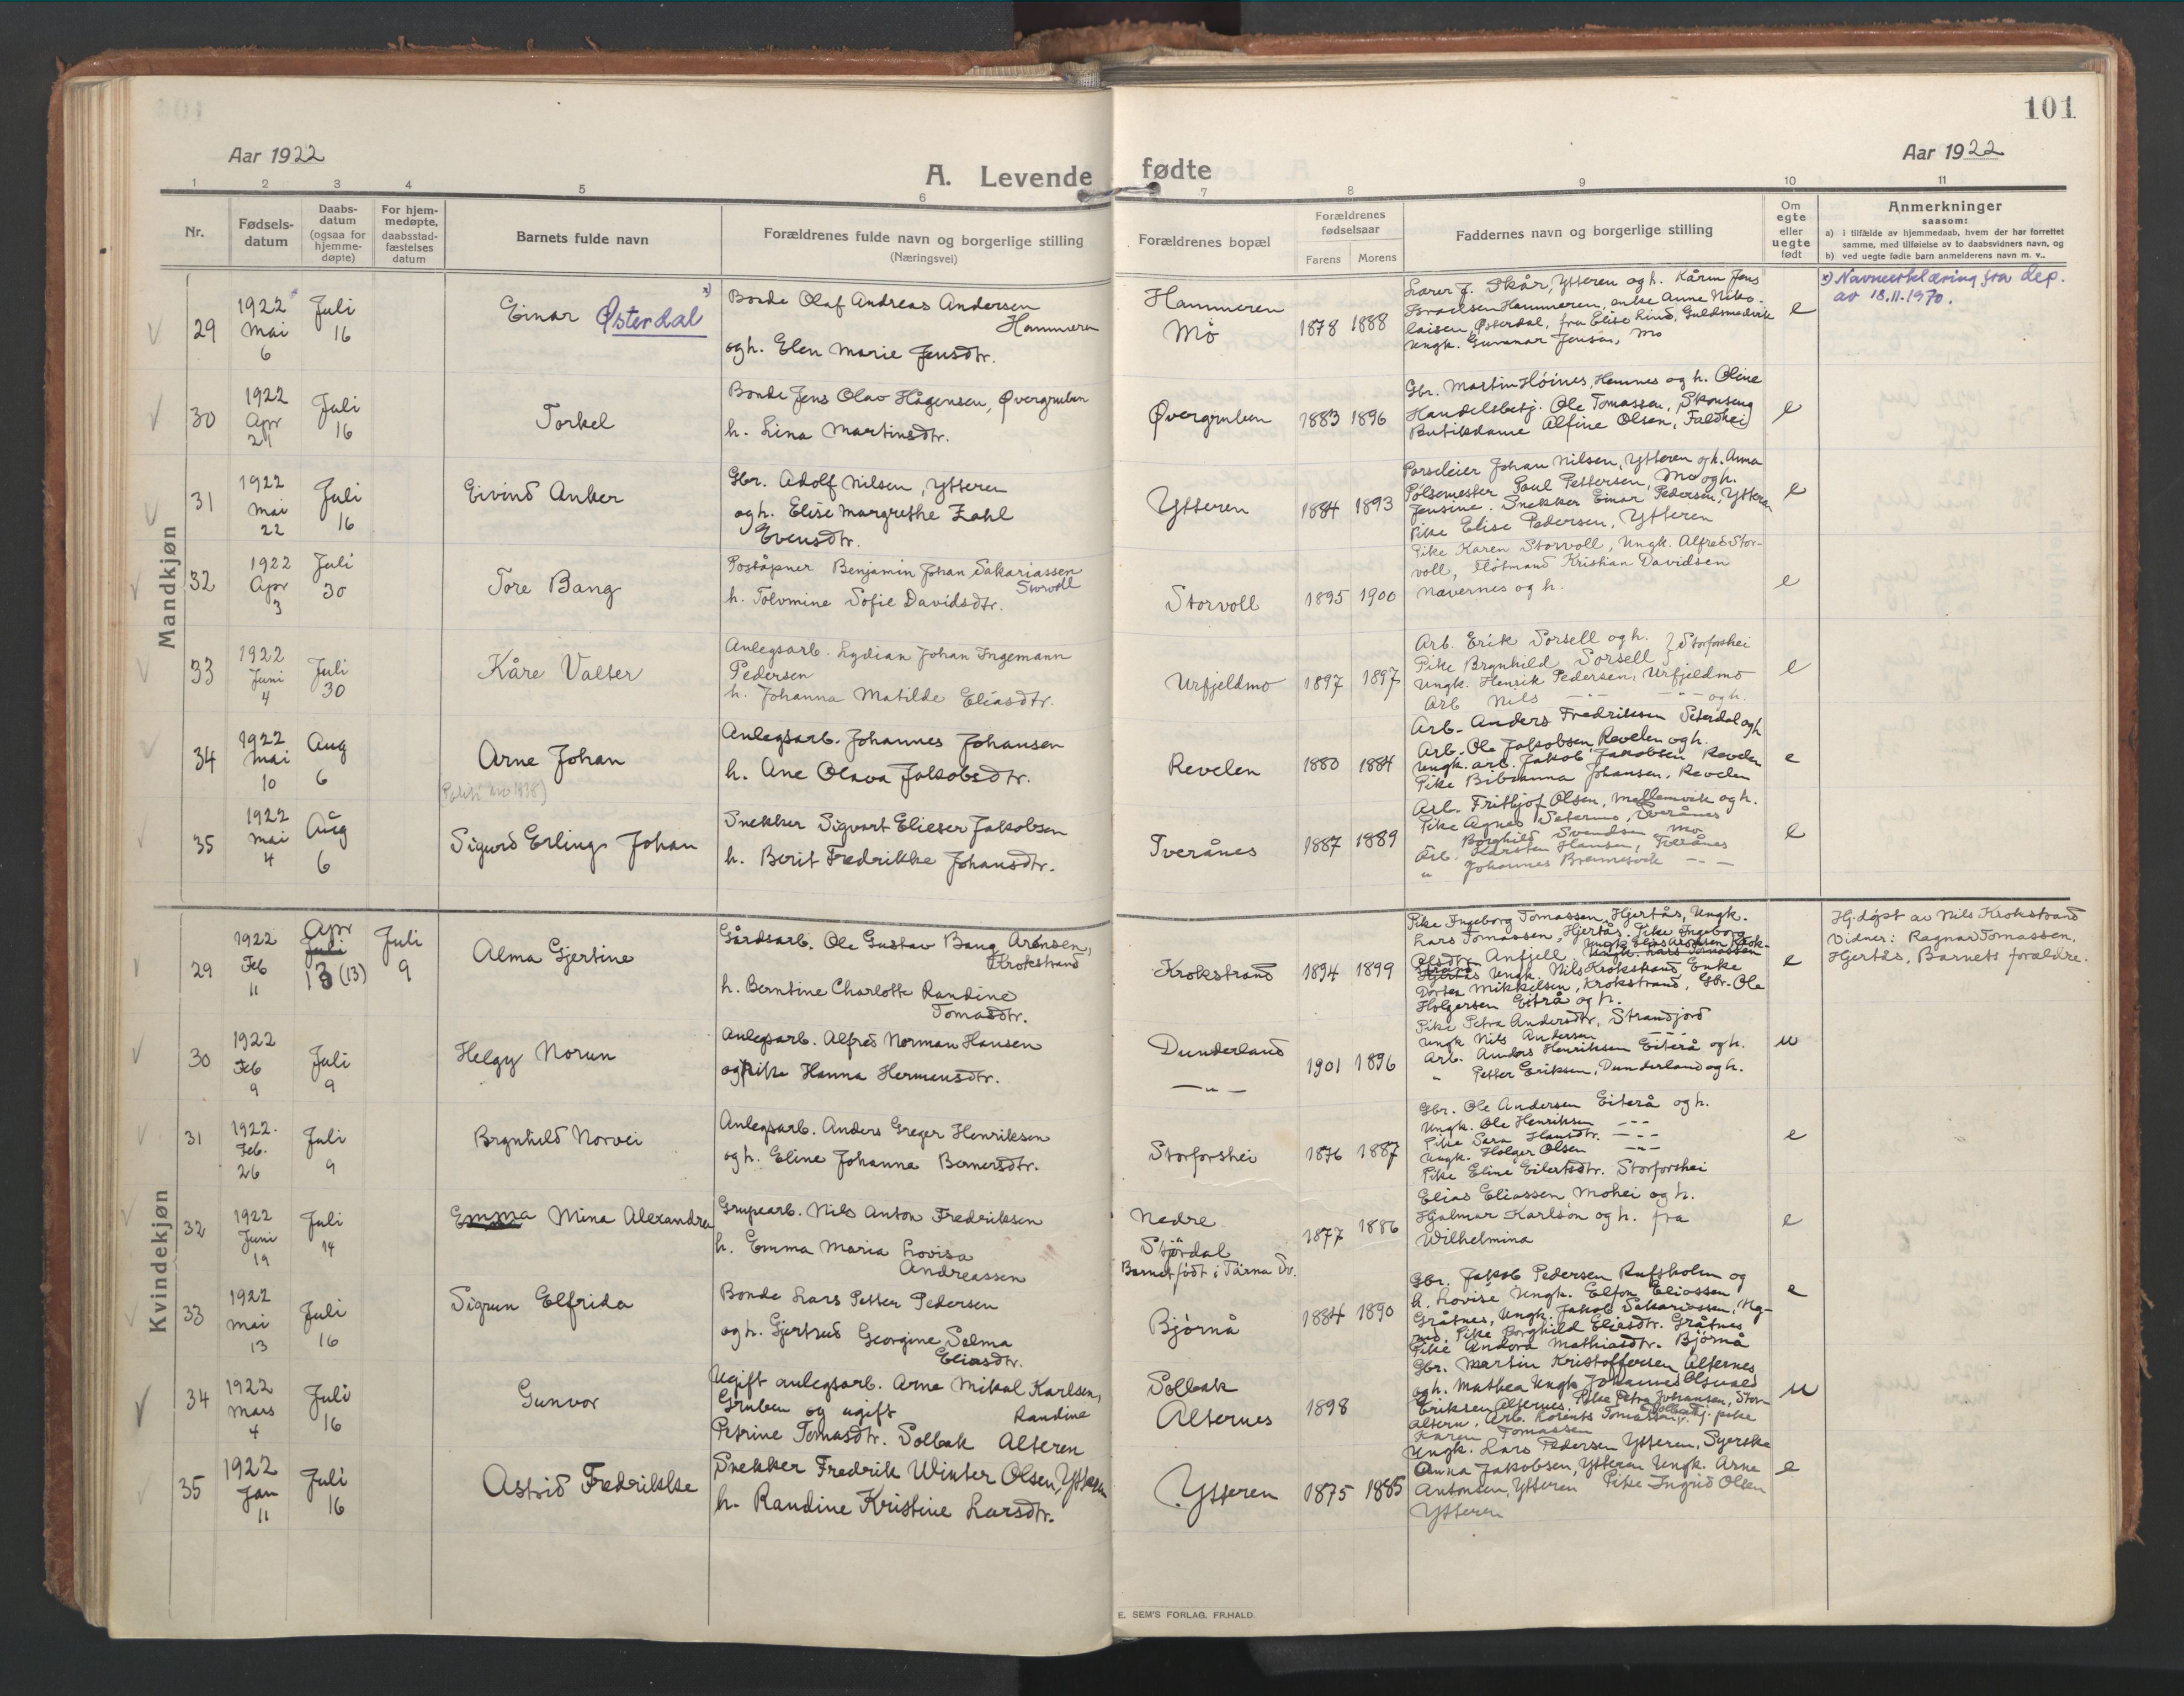 101
Aar 1922
Aar 1922
A. Levende fødte
1 2 3 4 5 6 7 8 9 10 11
Nr.
Fødsels-
datum
Daabs-
datum
(ogsaa for
hjemme-
døpte)
For hjem-
medøpte,
daabsstad-
fæstelses
datum
Barnets fulde navn
Forældrenes fulde navn og borgerlige stilling
(Næringsvei)
Forældrenes bopæl
Forældrenes
fødselsaar
Farens Morens
Faddernes navn og borgerlige stilling
Om
egte
eller
uegte
født
Anmerkninger
saasom:
a) i tilfælde av hjemmedaab, hvem der har forrettet
samme, med tilføielse av to daabsvidners navn, og
b) ved uegte fødte barn anmelderens navn m. v..
Mandkjøn
29
1922
Mai
6
Juli
16
Einar Østerdal x)
Bonde Olaf Andreas Andersen
Hammeren
og h. Elen Marie Jensdtr.
Hammeren
Mo
1878 1888
Lærer J. Skår, Ytteren og h. Kåren Jens
Israelsen Hammeren, enke Anne Niko-
laisen, Østerdal, fru Elise Lind, Guldsmedvik
Ungk. Gunnar Jensen, Mo
e
x) Navneerklæring fra dep.
av 18.11.1970.
30
1922
Apr
21
Juli
16
Torkel
Bonde Jens Olav Hågensen, Øvergruben
h. Lina Martinsdtr.
Øvergruben
1883 1896
Gbr. Martin Høines, Hemnes og h. Oline
Handelsbetj. Ole Tomassen, Skonseng
Butikdame Alfine Olsen, Faldhei
e
31
1922
Mai
22
Juli
16
Eivind Anker
Gbr. Adolf Nilsen, Ytteren
og h. Elise Margrethe Zahl
Evensdtr.
Ytteren
1884 1893
Parseleier Johan Nilsen, Ytteren og h. Anna
Pølsemester Paul Pettersen, Mo og h.
Jensine. Snekker Einar Pedersen, Ytteren
Pike Elise Pedersen, Ytteren
e
32
1922
Apr
3
Juli
30
Tore Bang
Poståpner Benjamin Johan Sakariassen
Storvoll
h. Tolvmine Sofie Davidsdtr.
Storvoll
1895 1900
Pike Karen Storvoll, Ungk. Alfred Stor-
voll, Fløtmand Kristian Davidsen
Nævernes og h.
e
33
1922
Juni
4
Juli
30
Kåre Valter
Anlegsarb. Lydian Johan Ingemann
Pedersen
h. Johanna Matilde Eliasdtr.
Urfjeldmo
1897 1897
Arb. Erik Sorsell og h. } Storforshei
Pike Brynhild Sorsell
Ungk. Henrik Pedersen, Urfjeldmo
Arb Nils — " — — " — og h.
e
34
1922
Mai
10
Aug
6
Arne Johan
Anlegsarb. Johannes Johansen
h. Ane Olava Jakobsdtr.
Revelen
1880 1884
Arb. Anders Fredriksen Seterdal og h
Arb. Ole Jakobsen, Revelen og h.
Ungk. arb. Jakob Jakobsen Revelen
Pike Bibianna Johansen, Revelen
e
35
1922
Mai
4
Aug
6
Sigurd Erling Johan
Snekker Sigvart Elieser Jakobsen
h. Berit Fredrikke Johansdtr.
Tverånes
1887 1889
Arb. Fritjof Olsen, Mellemvik og h.
Pike Agnes Seternes, Tverånes
Borghild Svendsen Mo
Arb. Karsten Hansen, Tverånes
" Johannes Brennesvik — " —
e
Kvindekjøn
29
1922
Feb
11
Apr
Juli
13 (13)
Juli
9
Alma Gjertine
Gårdsarb. Ole Gustav Bang Arensen,
Krokstrand
h. Berntine Charlotte Randine
Tomasdtr.
Krokstrand
1894 1899
Pike Ingeborg Tomassen, Hjertås, Ungk.
Lars Tomassen, Hjertås. Pike Ingeborg
Olsdtr. Anfjell, Ungk. Lars Tomassen
Hjertås Ungk. Nils Krokstrand, Enke
Dortea Mikkelsen, Krokstrand, Gbr. Ole
Holgersen Eiterå og h.
e
Hj.døpt av Nils Krokstrand
Vidner: Ragnar Tomassen,
Hjertås, Barnets forældre.
30
1922
Feb
9
Juli
9
Helgy Norun
Anlegsarb. Alfred Norman Hansen
og Pike Hanna Hermansdtr.
Dunderland
— " —
1901 1896
Pike Petra Andersdtr, Strandjord
Ungk Nils Andersen — " —
Arb. Anders Henriksen Eiterå og h.
" Petter Eriksen, Dunderland og h.
u
31
1922.
Feb.
26
Juli
9
Brynhild Norvei
Anlegsarb. Anders Greger Henriksen
og h. Eline Johanna Bernersdtr.
Storforshei
1876 1887
Gbr. Ole Andersen Eiterå og h.
Ungk. Ole Henriksen — " —
Pike Sara Hansdtr. — " —
Ungk. Holger Olsen — " —
Pike Eline Eilertsdtr. Storforshei
e
32
1922
Juni
19
Juli
14
Emma Mina Alexandra
Grupearb. Nils Anton Fredriksen
h. Emma Maria Lovisa
Andreassen
Nedre
Stjørdal
Barnet født i Tärna Sv.
1877 1886
Elias Eliassen Mohei og h.
Hjalmar Karlson og h. fra
Wilhelmina
e
33
1922
Mai
13
Juli
16
Sigrun Elfrida
Bonde Lars Petter Pedersen
og h. Gjertrud Georgine Selma
Eliasdtr.
Bjørnå
1884 1890
Gbr. Jakob Pedersen Rufsholm og
h. Lovise Ungk. Elfon Eliassen
Gråtnes, Ungk. Jakob Sakariassen,
Pike Borghild Eliasdtr. Gråtnes
Pike Andora Mathiasdtr. Bjørnå
e
34
1922
Mars
4
Juli
16
Gunvor
Ugift anlegsarb. Arne Mikal Karlsen,
Gruben og ugift Randine
Petrine Tomasdtr. Solbak Alteren
Solbak
Alternes
1898
Gbr. Martin Kristoffersen Alternes
og h. Mathea Ungk Johannes
Eriksen Alternes, Pike Petra Johansen, Stor-
altern, Arb. Lorents Tomassen, pike
Karen Tomassen
u
35
1922
Jan
11
Juli
16
Astrid Fredrikke
Snekker Fredrik Winter Olsen, Ytteren
h. Randine Kristine Larsdtr.
Ytteren
1875 1885
Ungk. Lars Pedersen Ytteren, Syerske
Anna Jakobsen, Ytteren Ungk. Arne
Antonsen, Ytteren Pike Ingrid Olsen
Ytteren
e
E. SEM'S FORLAG, FR.HALD.